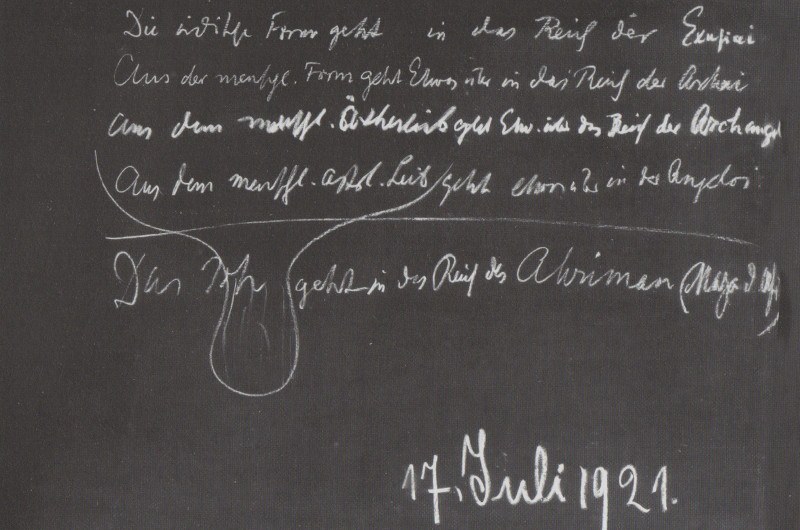 Die irdische Form geht in das Reich der Exusiai
Aus der menschl. Form geht Etwas über in das Reich der Archai
Aus dem menschl. Ätherleib geht Etw. über das Reich der Archangel
Aus dem menschl. astr. Leib geht etwas über in der Angeloi
Das Ich geht in das Reich des Ahriman (
17. Juli 1921.